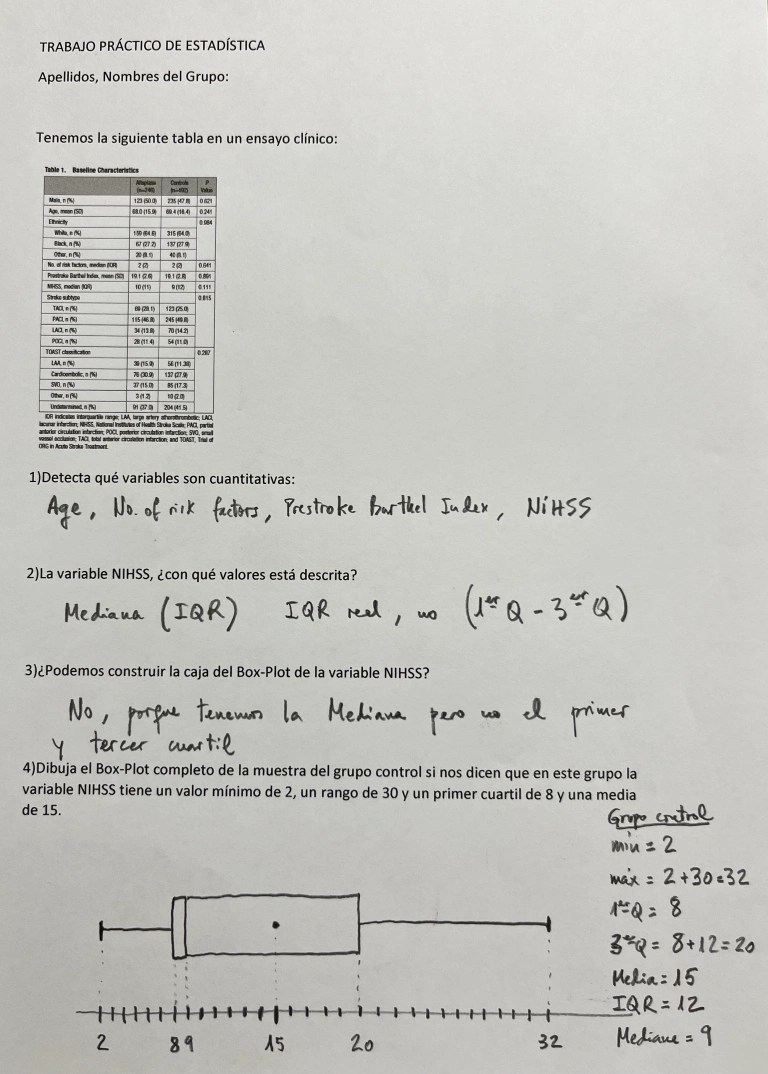 TRABAJO PRÁCTICO DE ESTADÍSTICA
Apellidos, Nombres del Grupo:
Tenemos la siguiente tabla en un ensayo clínico:
Table 1. Baseline Characteristics
Alteplase Controls P
(n=246) (n=492) Value
Male, n (%) 123 (50.0) 235 (47.8) 0.621
Age, mean (SD) 68.0 (15.9) 69.4 (16.4) 0.241
Ethnicity 0.984
White, n (%) 159 (64.6) 315 (64.0)
Black, n (%) 67 (27.2) 137 (27.9)
Other, n (%) 20 (8.1) 40 (8.1)
No. of risk factors, median (IQR) 2 (2) 2 (2) 0.641
Prestroke Barthel Index, mean (SD) 19.1 (2.6) 19.1 (2.8) 0.891
NIHSS, median (IQR) 10 (11) 9 (12) 0.111
Stroke subtype 0.815
TACI, n (%) 69 (28.1) 123 (25.0)
PACI, n (%) 115 (46.8) 245 (49.8)
LACI, n (%) 34 (13.8) 70 (14.2)
POCI, n (%) 28 (11.4) 54 (11.0)
TOAST classification 0.287
LAA, n (%) 39 (15.9) 56 (11.38)
Cardioembolic, n (%) 76 (30.9) 137 (27.9)
SVO, n (%) 37 (15.0) 85 (17.3)
Other, n (%) 3 (1.2) 10 (2.0)
Undetermined, n (%) 91 (37.0) 204 (41.5)
IQR indicates interquartile range; LAA, large artery atherothrombotic; LACI,
lacunar infarction; NIHSS, National Institutes of Health Stroke Scale; PACI, partial
anterior circulation infarction; POCI, posterior circulation infarction; SVO, small
vessel occlusion; TACI, total anterior circulation infarction; and TOAST, Trial of
ORG in Acute Stroke Treatment.
1)Detecta qué variables son cuantitativas:
Age, No. of risk factors, Prestroke Barthel Index, NiHSS
2)La variable NIHSS, ¿con qué valores está descrita?
Mediana (IQR) IQR real, no (1er Q - 3er Q)
3)¿Podemos construir la caja del Box-Plot de la variable NIHSS?
No, porque tenemos la Mediana pero no el primer
y tercer cuartil
4)Dibuja el Box-Plot completo de la muestra del grupo control si nos dicen que en este grupo la
variable NIHSS tiene un valor mínimo de 2, un rango de 30 y un primer cuartil de 8 y una media
de 15.
Grupo control
min = 2
máx = 2+30=32
1erQ = 8
3erQ = 8+12=20
Media=15
IQR = 12
Mediana = 9
2 8 9 15 20 32